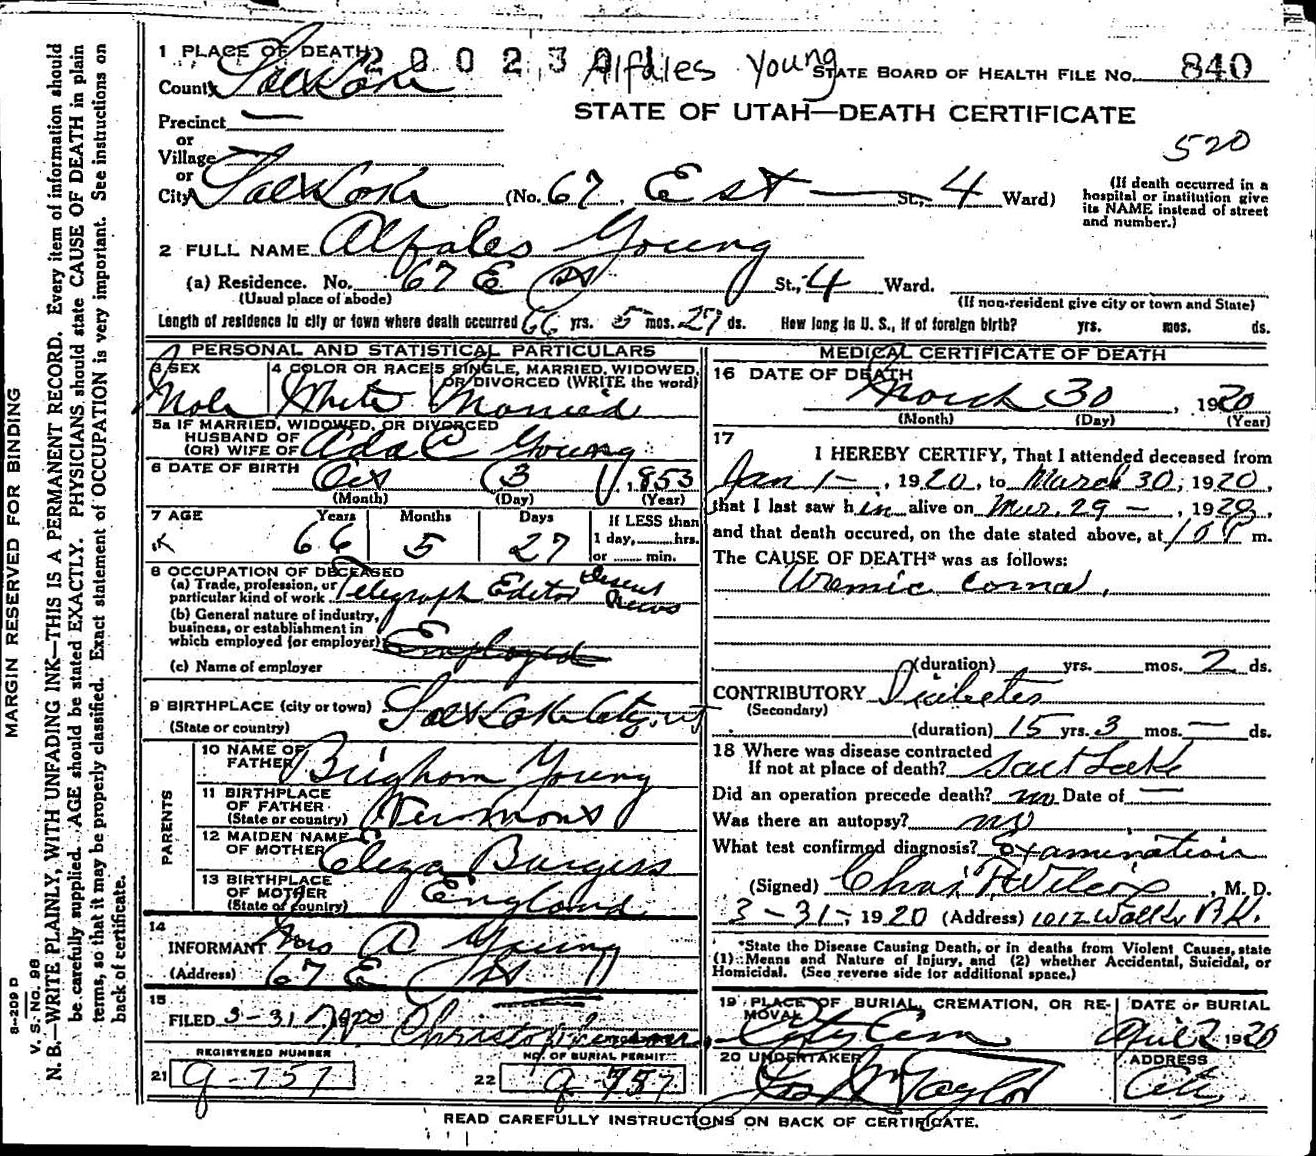 1 PLACE OF DEATH 2 0 0 2 3 0 1 Alfales Young STATE BOARD OF HEALTH FILE No. 840
County Salt Lake
STATE OF UTAH—DEATH CERTIFICATE
Precinct —
or
Village
or
520
City Salt Lake (No. 67 E st — St., 4 Ward)
(If death occurred in a hospital or institution give its NAME instead of street and number.)
2 FULL NAME Alfales Young
(a) Residence. No. 67 E St St., 4 Ward.
(Usual place of abode) (If non-resident give city or town and State)
Length of residence in city or town where death occurred 66 yrs. 5 mos. 27 ds. How long in U. S., if of foreign birth? yrs. mos. ds.
PERSONAL AND STATISTICAL PARTICULARS
3 SEX 4 COLOR OR RACE 5 SINGLE, MARRIED, WIDOWED, OR DIVORCED (WRITE the word)
Male White Married
5a IF MARRIED, WIDOWED, OR DIVORCED
HUSBAND OF
(OR) WIFE OF Ada C Young
6 DATE OF BIRTH Oct 3 1853
(Month) (Day) (Year)
7 AGE Years Months Days If LESS than
66 5 27 1 day, hrs.
or min.
8 OCCUPATION OF DECEASED
(a) Trade, profession, or
particular kind of work Telegraph Editor Deseret News
(b) General nature of industry,
business, or establishment in
which employed (or employer) Employed
(c) Name of employer
9 BIRTHPLACE (city or town) Salt Lake City, Ut
(State or country)
PARENTS
10 NAME OF
FATHER Brigham Young
11 BIRTHPLACE
OF FATHER
(State or country) Vermont
12 MAIDEN NAME
OF MOTHER Eliza Burgess
13 BIRTHPLACE
OF MOTHER
(State of country) England
14
INFORMANT Mrs A Young
(Address) 67 E St
15
FILED 3-31 1920
REGISTERED NUMBER NO. OF BURIAL PERMIT
21 9-757 22 9-757
MEDICAL CERTIFICATE OF DEATH
16 DATE OF DEATH
March 30, 1920
(Month) (Day) (Year)
17
I HEREBY CERTIFY, That I attended deceased from
Jan 1 -, 1920, to March 30, 1920,
that I last saw him alive on Mar. 29 -, 1920,
and that death occured, on the date stated above, at 10 P m.
The CAUSE OF DEATH* was as follows:
Uremic coma,
(duration) yrs. mos. 2 ds.
CONTRIBUTORY Diabetes
(Secondary)
(duration) 15 yrs. 3 mos. — ds.
18 Where was disease contracted
If not at place of death? Salt Lake
Did an operation precede death? no Date of —
Was there an autopsy? no
What test confirmed diagnosis? Examination
(Signed) Chas F Wilcox, M. D.
3-31-, 1920 (Address) 1012 Walker BK.
*State the Disease Causing Death, or in deaths from Violent Causes, state
(1) Means and Nature of Injury, and (2) whether Accidental, Suicidal, or
Homicidal. (See reverse side for additional space.)
19 PLACE OF BURIAL, CREMATION, OR REMOVAL DATE OF BURIAL
City Cem April 2 1920
20 UNDERTAKER ADDRESS
Jos Wm Taylor City
READ CAREFULLY INSTRUCTIONS ON BACK OF CERTIFICATE.
MARGIN RESERVED FOR BINDING
8-209 D
V. S. No. 98
N. B.—WRITE PLAINLY, WITH UNFADING INK—THIS IS A PERMANENT RECORD. Every item of information should
be carefully supplied. AGE should be stated EXACTLY. PHYSICIANS should state CAUSE OF DEATH in plain
terms, so that it may be properly classified. Exact statement of OCCUPATION is very important. See instructions on
back of certificate.